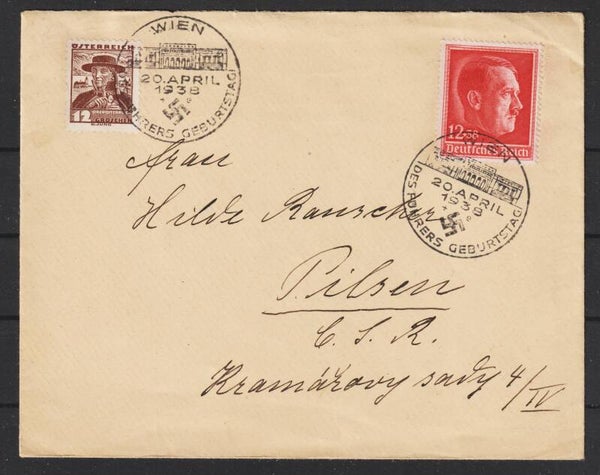 ÖSTERREICH
12 GROSCHEN
WIEN
20. APRIL
1938
DES FÜHRERS GEBURTSTAG
12+38
Deutsches Reich
WIEN
20. APRIL
1938
DES FÜHRERS GEBURTSTAG
Frau
Hilde Rauscher
Pilsen
Č. S. R.
Kramářovy sady 4/IV